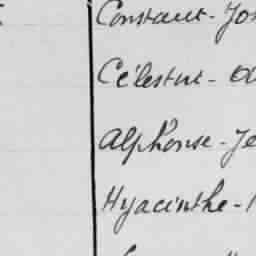 Constant - Jos
Célestin -
Alphonse - Je
Hyacinthe -